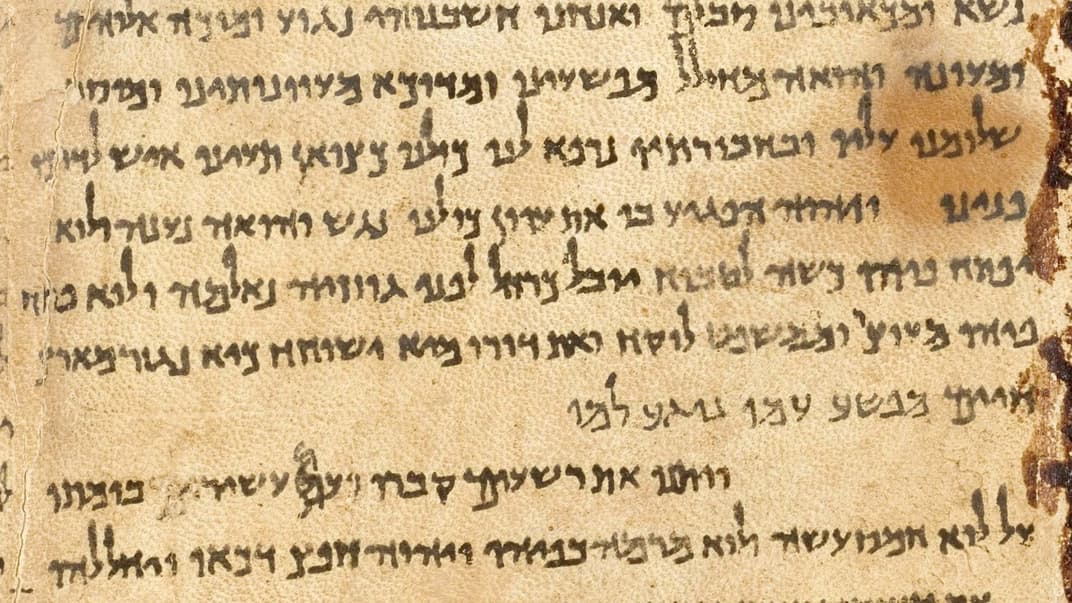 נשא ומכאובינו סבלם ואנחנו חשבנוהו נגוע ומוכה אלוהים
ומעונה והואה מחולל מפשעינו ומדוכא מעוונותינו ומוסר
שלומנו עליו ובחבורתיו נרפא לנו כולנו כצואן תעינו איש לדרכו
פנינו ויהוה הפגיע בו את עוון כולנו נגש והואה נענה ולוא
יפתח פיהו כשה לטבוח יובל כרחל לפני גוזזיה נאלמה ולוא פתח
פיהו מעוצר וממשפט לוקח ואת דורו מיא ישוחח כיא נגזר מארץ
חיים מפשע עמו נוגע למו
ויתנו את רשעים קברו ועם בומתו
על לוא חמס עשה ולוא מרמה בפיהו ויהוה חפץ דכאו ויחללהו